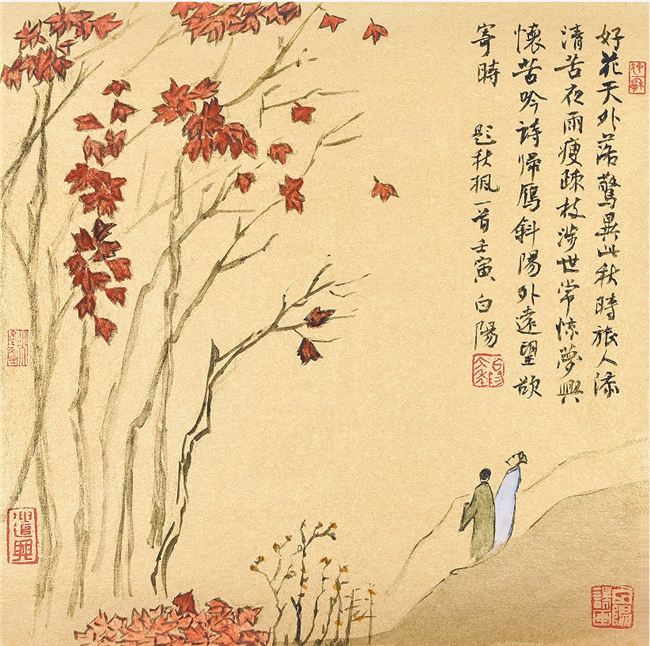 好花天外落驚異此秋時旅人添
清苦夜雨瘦疎枝涉世常惊夢興
懷苦吟詩歸鴈斜陽外遠望欲
寄時 题秋楓一首壬寅白陽